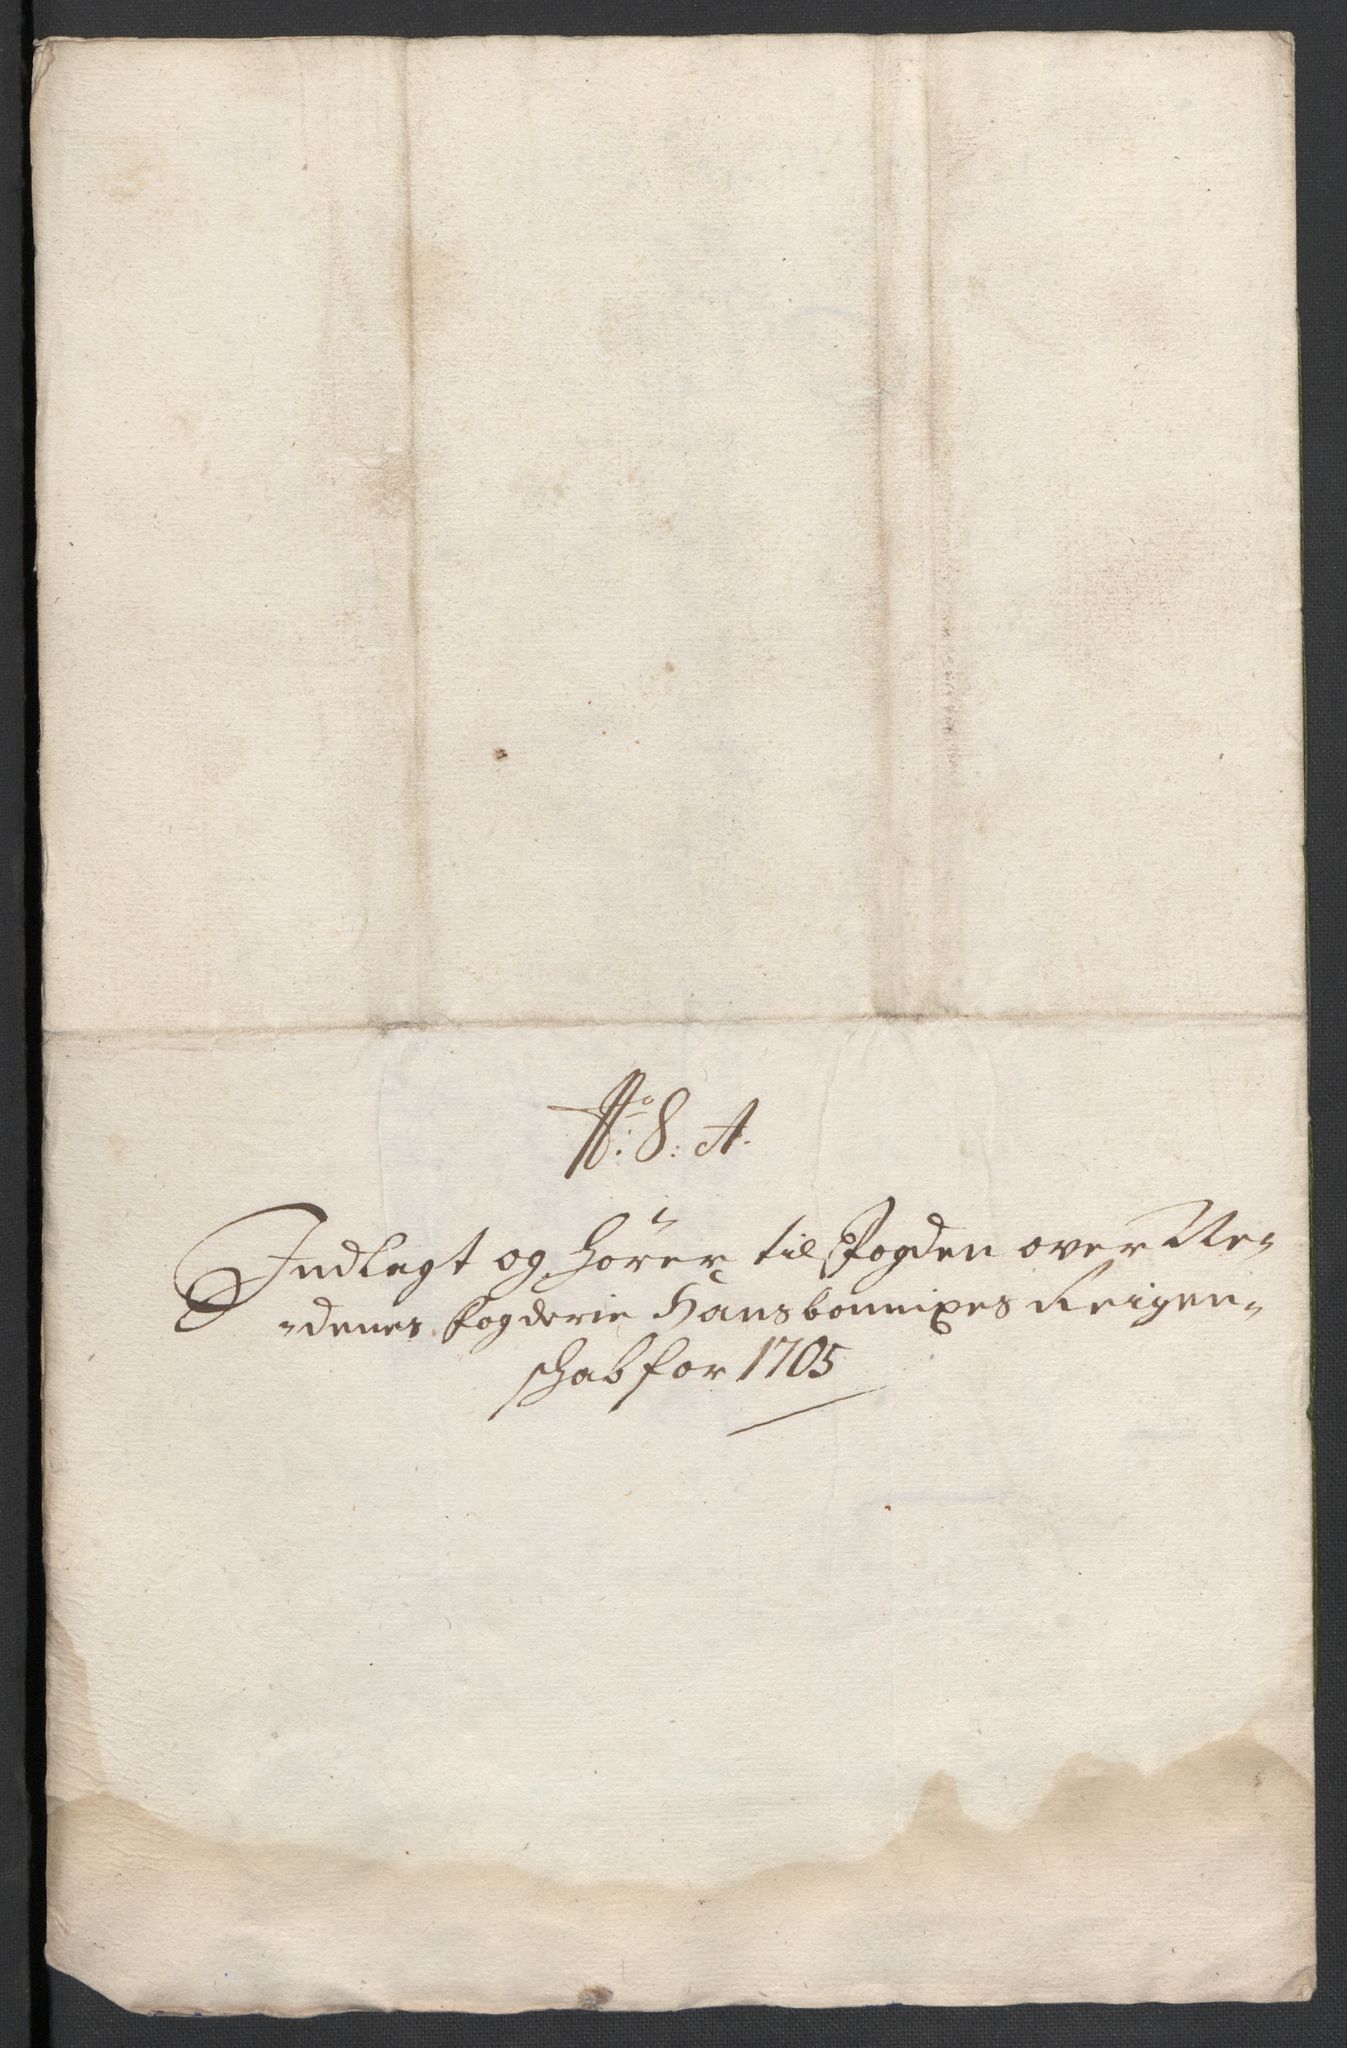 No: 8: A.
Indlagt og hører til Fogden over Ne-
-denes Fogderie Hans bonnixes Reigen-
schab for 1705